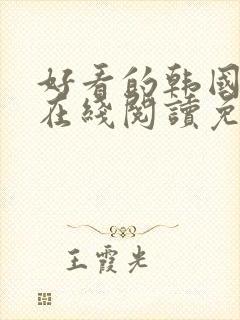 好看的韩国
在綫閱讀免
王霞光